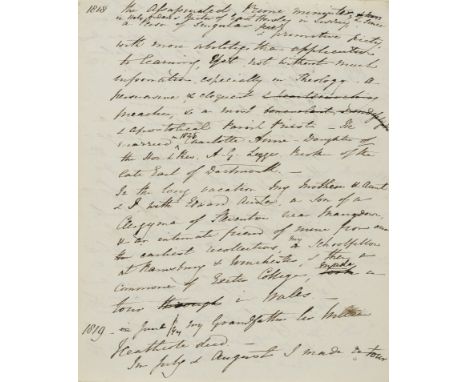 1818 the assassinated Prime Minister
in Holy Orders & Rector of East Horsley in Surrey
a Person of singular & primitive piety,
with more ability than application
to learning, yet not without much
information especially in Theology. A
persuasive & eloquent
preacher, & a most
& apostolical Parish Priest – He
married 1826 Charlotte Anne – Daughter of
the Hon. & Rev. A. G. Legge, niece of the
late Earl of Dartmouth. –
In the long vacation my Mother & Aunt
& I with Edward a son of a
Clergyman of Steventon near
& an intimate friend of mine from our
earliest recollections, my Schoolfellow
at Ramsbury & Winchester & then a
Commoner of Exeter College, made a
tour through in Wales. –
1819 – in June my Grandfather Sir William
Heathcote died. –
In July & August I made a tour